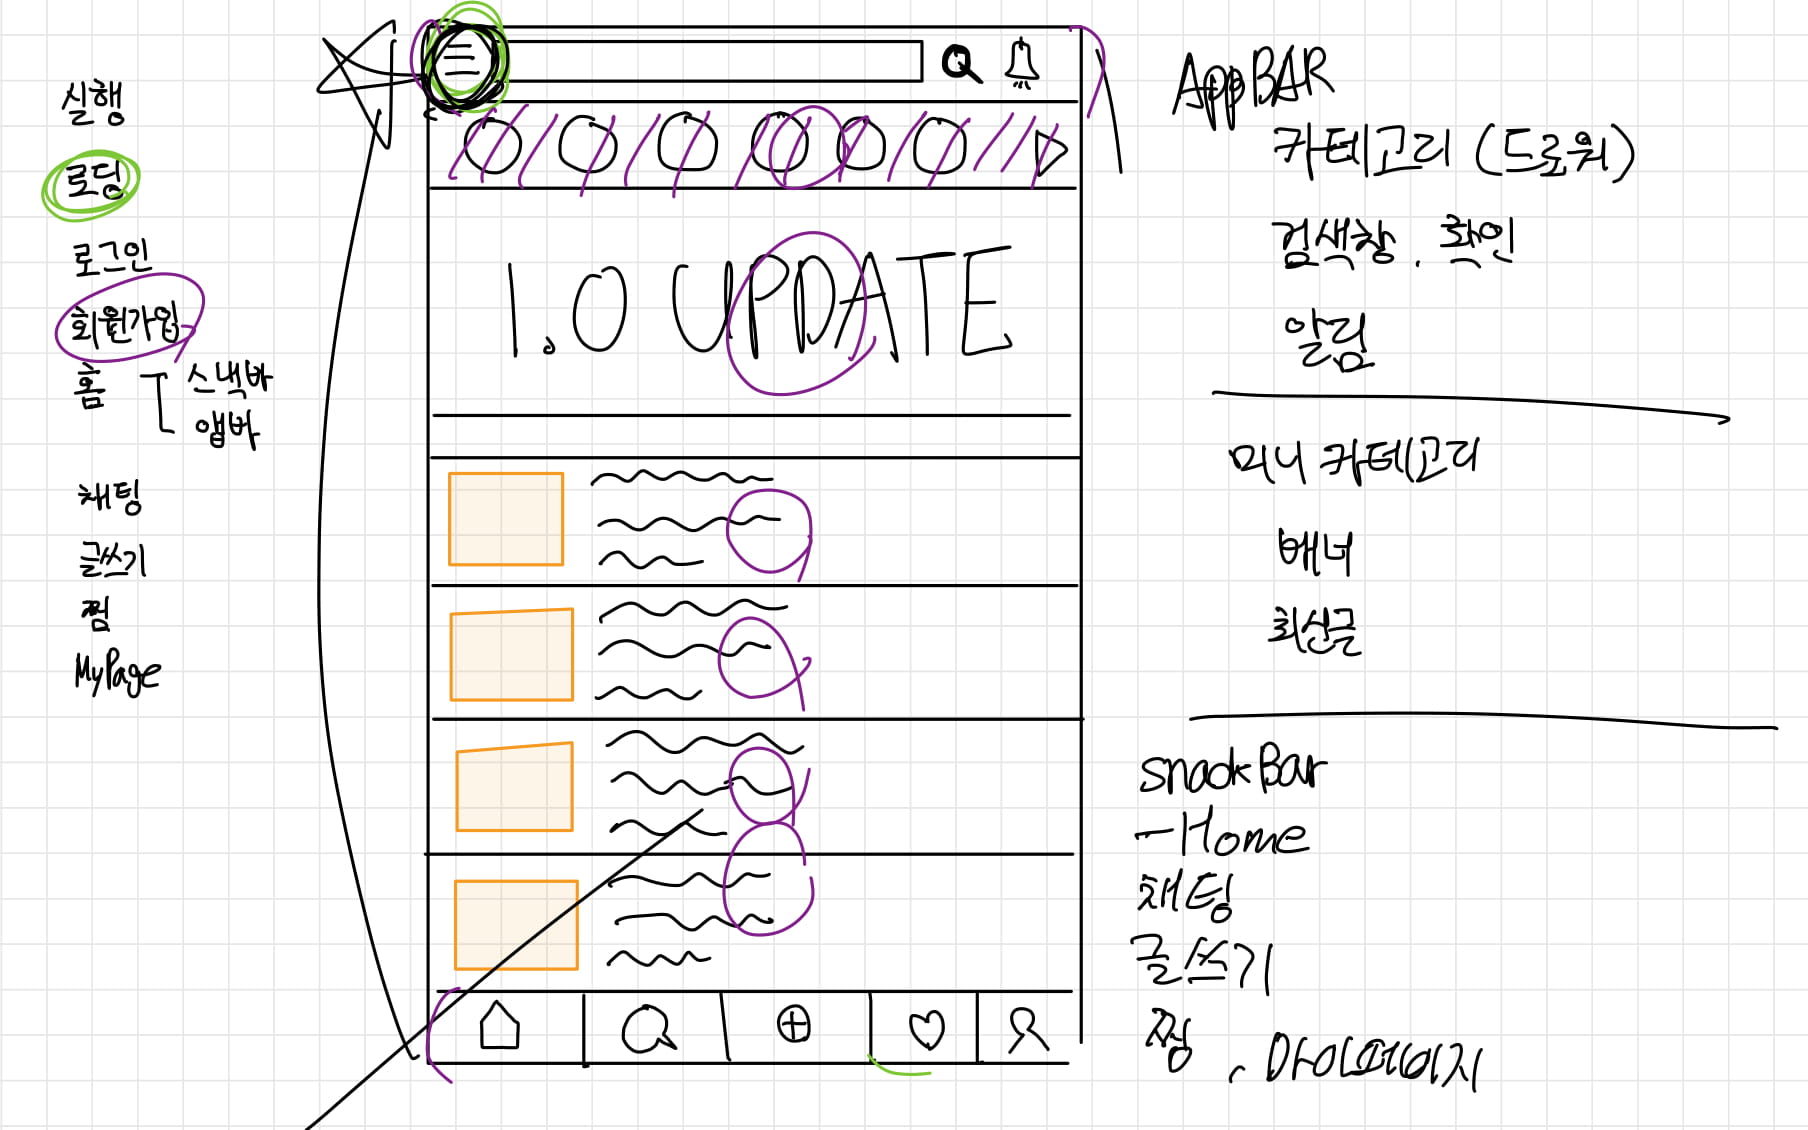 실행
로딩
로그인
회원가입
홈 스낵바
앱바
채팅
글쓰기
찜
MyPage
1.0 UPDATE
AppBAR
카테고리 (드로워)
검색창. 확인
알림
미니 카테고리
배너
최신글
snackBar
-Home
채팅
글쓰기
찜, 마이페이지